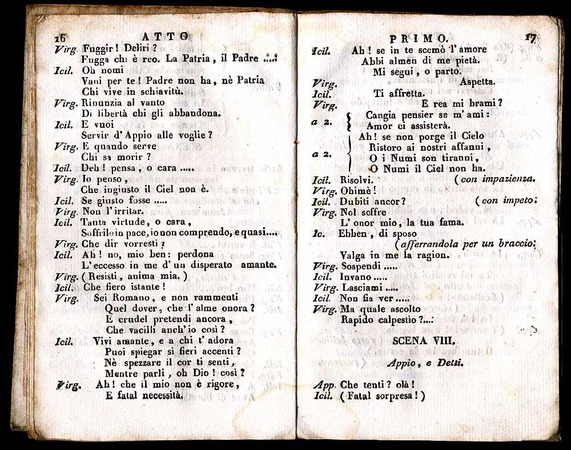 16 ATTO
Virg. Fuggir! Deliri?
Fugga chi è reo. La Patria, il Padre ....
Icil. Oh nomi
Vani per te! Padre non ha, nè Patria
Chi vive in schiavitù.
Virg. Rinunzia al vanto
Di libertà chi gli abbandona.
Icil. E vuoi
Servir d'Appio alle voglie?
Virg. E quando serve
Chi sa morir?
Icil. Deh! pensa, o cara .....
Virg. Io penso,
Che ingiusto il Ciel non è.
Icil. Se giusto fosse .....
Virg. Non l'irritar.
Icil. Tanta virtude, o cara,
Soffrilo in pace, io non comprendo, e quasi....
Virg. Che dir vorresti?
Icil. Ah! no, mio ben: perdona
L'eccesso in me d'un disperato amante.
Virg. (Resisti, anima mia.)
Icil. Che fiero istante!
Virg. Sei Romano, e non rammenti
Quel dover, che l'alme onora?
E crudel pretendi ancora,
Che vacilli anch'io così?
Icil. Vivi amante, e a chi t'adora
Puoi spiegar sì fieri accenti?
Nè spezzare il cor ti senti,
Mentre parli, oh Dio! così?
Virg. Ah! che il mio non è rigore,
E fatal necessità.
PRIMO. 17
Icil. Ah! se in te scemò l'amore
Abbi almen di me pietà.
Mi segui, o parto.
Virg. Aspetta.
Icil. Ti affretta.
Virg. E rea mi brami?
a 2. { Cangia pensier se m'ami:
Amor ci assisterà.
a 2. { Ah! se non porge il Cielo
Ristoro ai nostri affanni,
O i Numi son tiranni,
O Numi il Ciel non ha.
Icil. Risolvi. (con impazienza.
Virg. Ohimè!
Icil. Dubiti ancor? (con impeto:
Virg. Nol soffre
L'onor mio, la tua fama.
Ic. Ebben, di sposo
(afferrandola per un braccio:
Valga in me la ragion.
Virg. Sospendi .....
Icil. Invano .....
Virg. Lasciami .....
Icil. Non fia ver .....
Virg. Ma quale ascolto
Rapido calpestìo?...
SCENA VIII.
Appio, e Detti.
App. Che tenti? olà!
Icil. (Fatal sorpresa!)